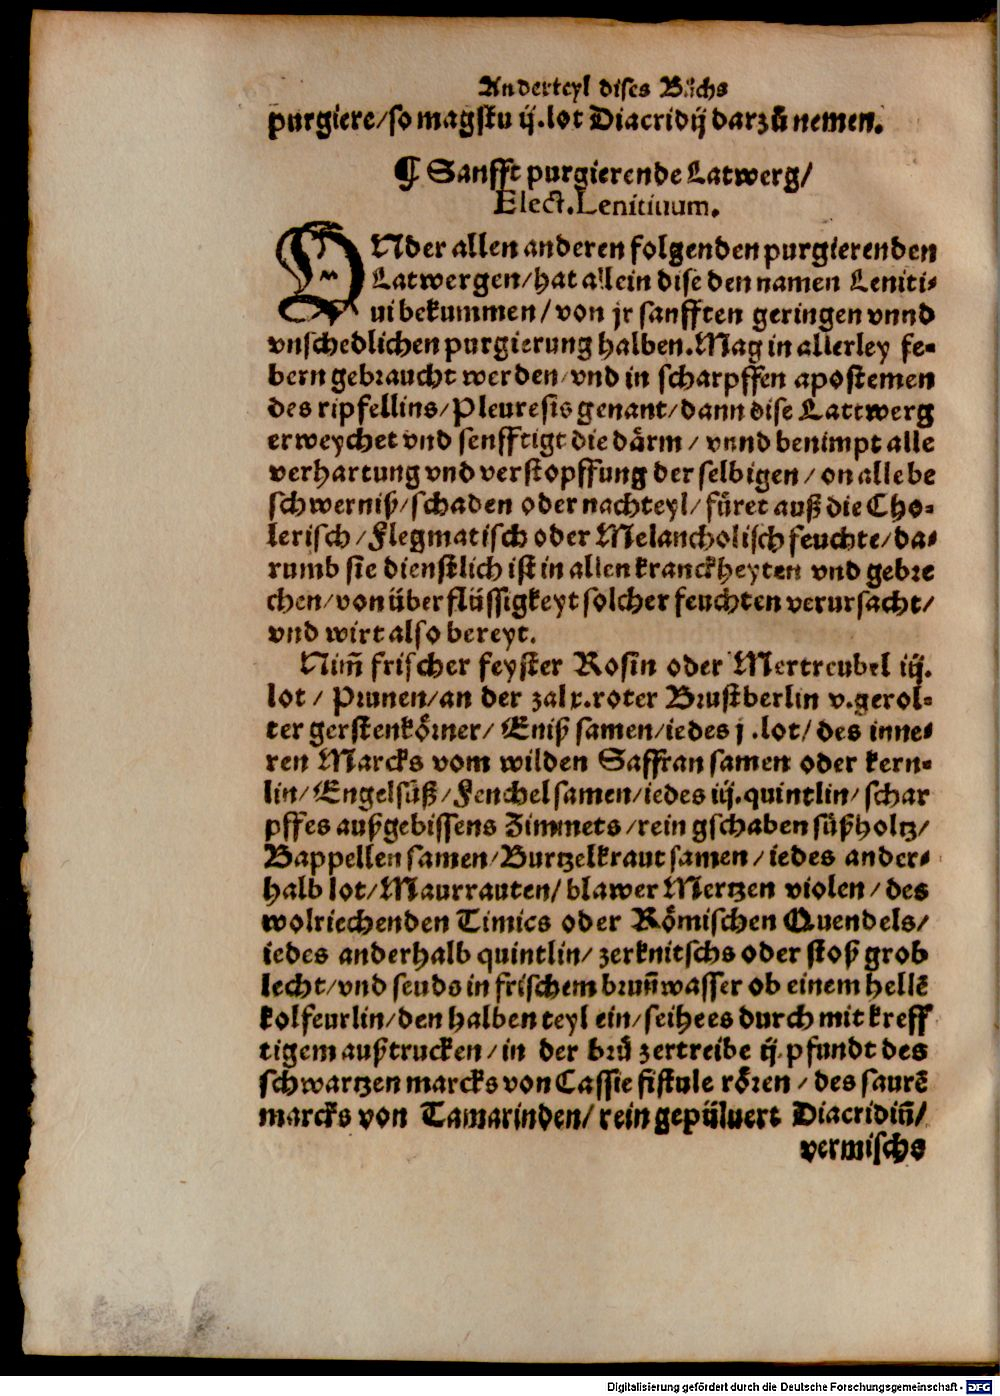 Anderteyl dises Bůchs
purgiere/so magstu ij.lot Diacridij darzů nemen.
¶ Sanfft purgierende Latwerg/
Elect.Lenitiuum.
UNder allen anderen folgenden purgierenden
Latwergen/hat allein dise den namen Leniti-
ui bekummen/von jr sanfften geringen vnnd
vnschedlichen purgierung halben.Mag in allerley fe-
bern gebraucht werden/vnd in scharpffen apostemen
des ripfellins/Pleuresis genant/dann dise Lattwerg
erweychet vnd senfftigt die därm/vnnd benimpt alle
verhartung vnd verstopffung der selbigen/on alle be
schwerniß/schaden oder nachteyl/füret auß die Cho-
lerisch/Flegmatisch oder Melancholisch feuchte/da-
rumb sie dienstlich ist in allen kranckheyten vnd gebre
chen/von überflüssigkeyt solcher feuchten verursacht/
vnd wirt also bereyt.
Nim̃ frischer feyster Rosin oder Mertreubel iij.
lot/Prunen/an der zal x.roter Brustberlin v.gerol-
ter gerstenkörner/Eniß samen/iedes j.lot/des inne-
ren Marcks vom wilden Saffran samen oder kern-
lin/Engelsüß/Fenchel samen/iedes iij.quintlin/schar
pffes außgebissens Zimmets/rein gschaben süßholtz/
Bappellen samen/Burtzelkraut samen/iedes ander-
halb lot/Maurrauten/blawer Mertzen violen/des
wolriechenden Timics oder Römischen Quendels/
iedes anderhalb quintlin/zerknitschs oder stoß grob
lecht/vnd seuds in frischem brun̄wasser ob einem hellē
kolfeurlin/den halben teyl ein/seihees durch mit kreff
tigem außtrucken/in der brů zertreibe ij.pfundt des
schwartzen marcks von Cassie fistule rören/des saurē
marcks von Tamarinden/rein gepüluert Diacridiū/
vermischs
Digitalisierung gefördert durch die Deutsche Forschungsgemeinschaft - DFG